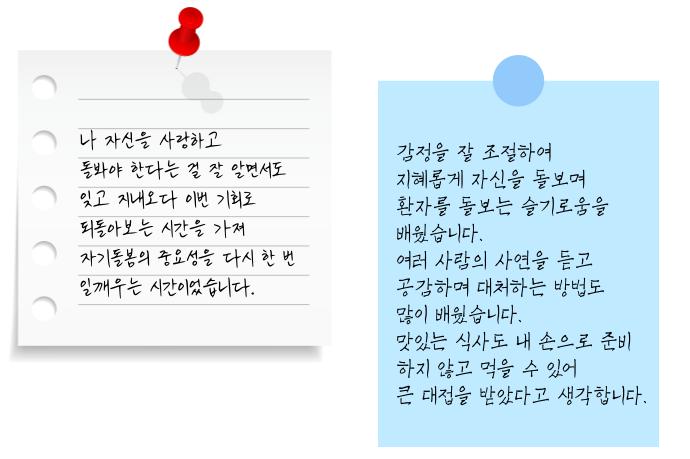 나 자신을 사랑하고
돌봐야 한다는 걸 잘 알면서도
잊고 지내오다 이번 기회로
되돌아보는 시간을 가져
자기돌봄의 중요성을 다시 한 번
일깨우는 시간이었습니다.
감정을 잘 조절하여
지혜롭게 자신을 돌보며
환자를 돌보는 슬기로움을
배웠습니다.
여러 사람의 사연을 듣고
공감하며 대처하는 방법도
많이 배웠습니다.
맛있는 식사도 내 손으로 준비
하지 않고 먹을 수 있어
큰 대접을 받았다고 생각합니다.